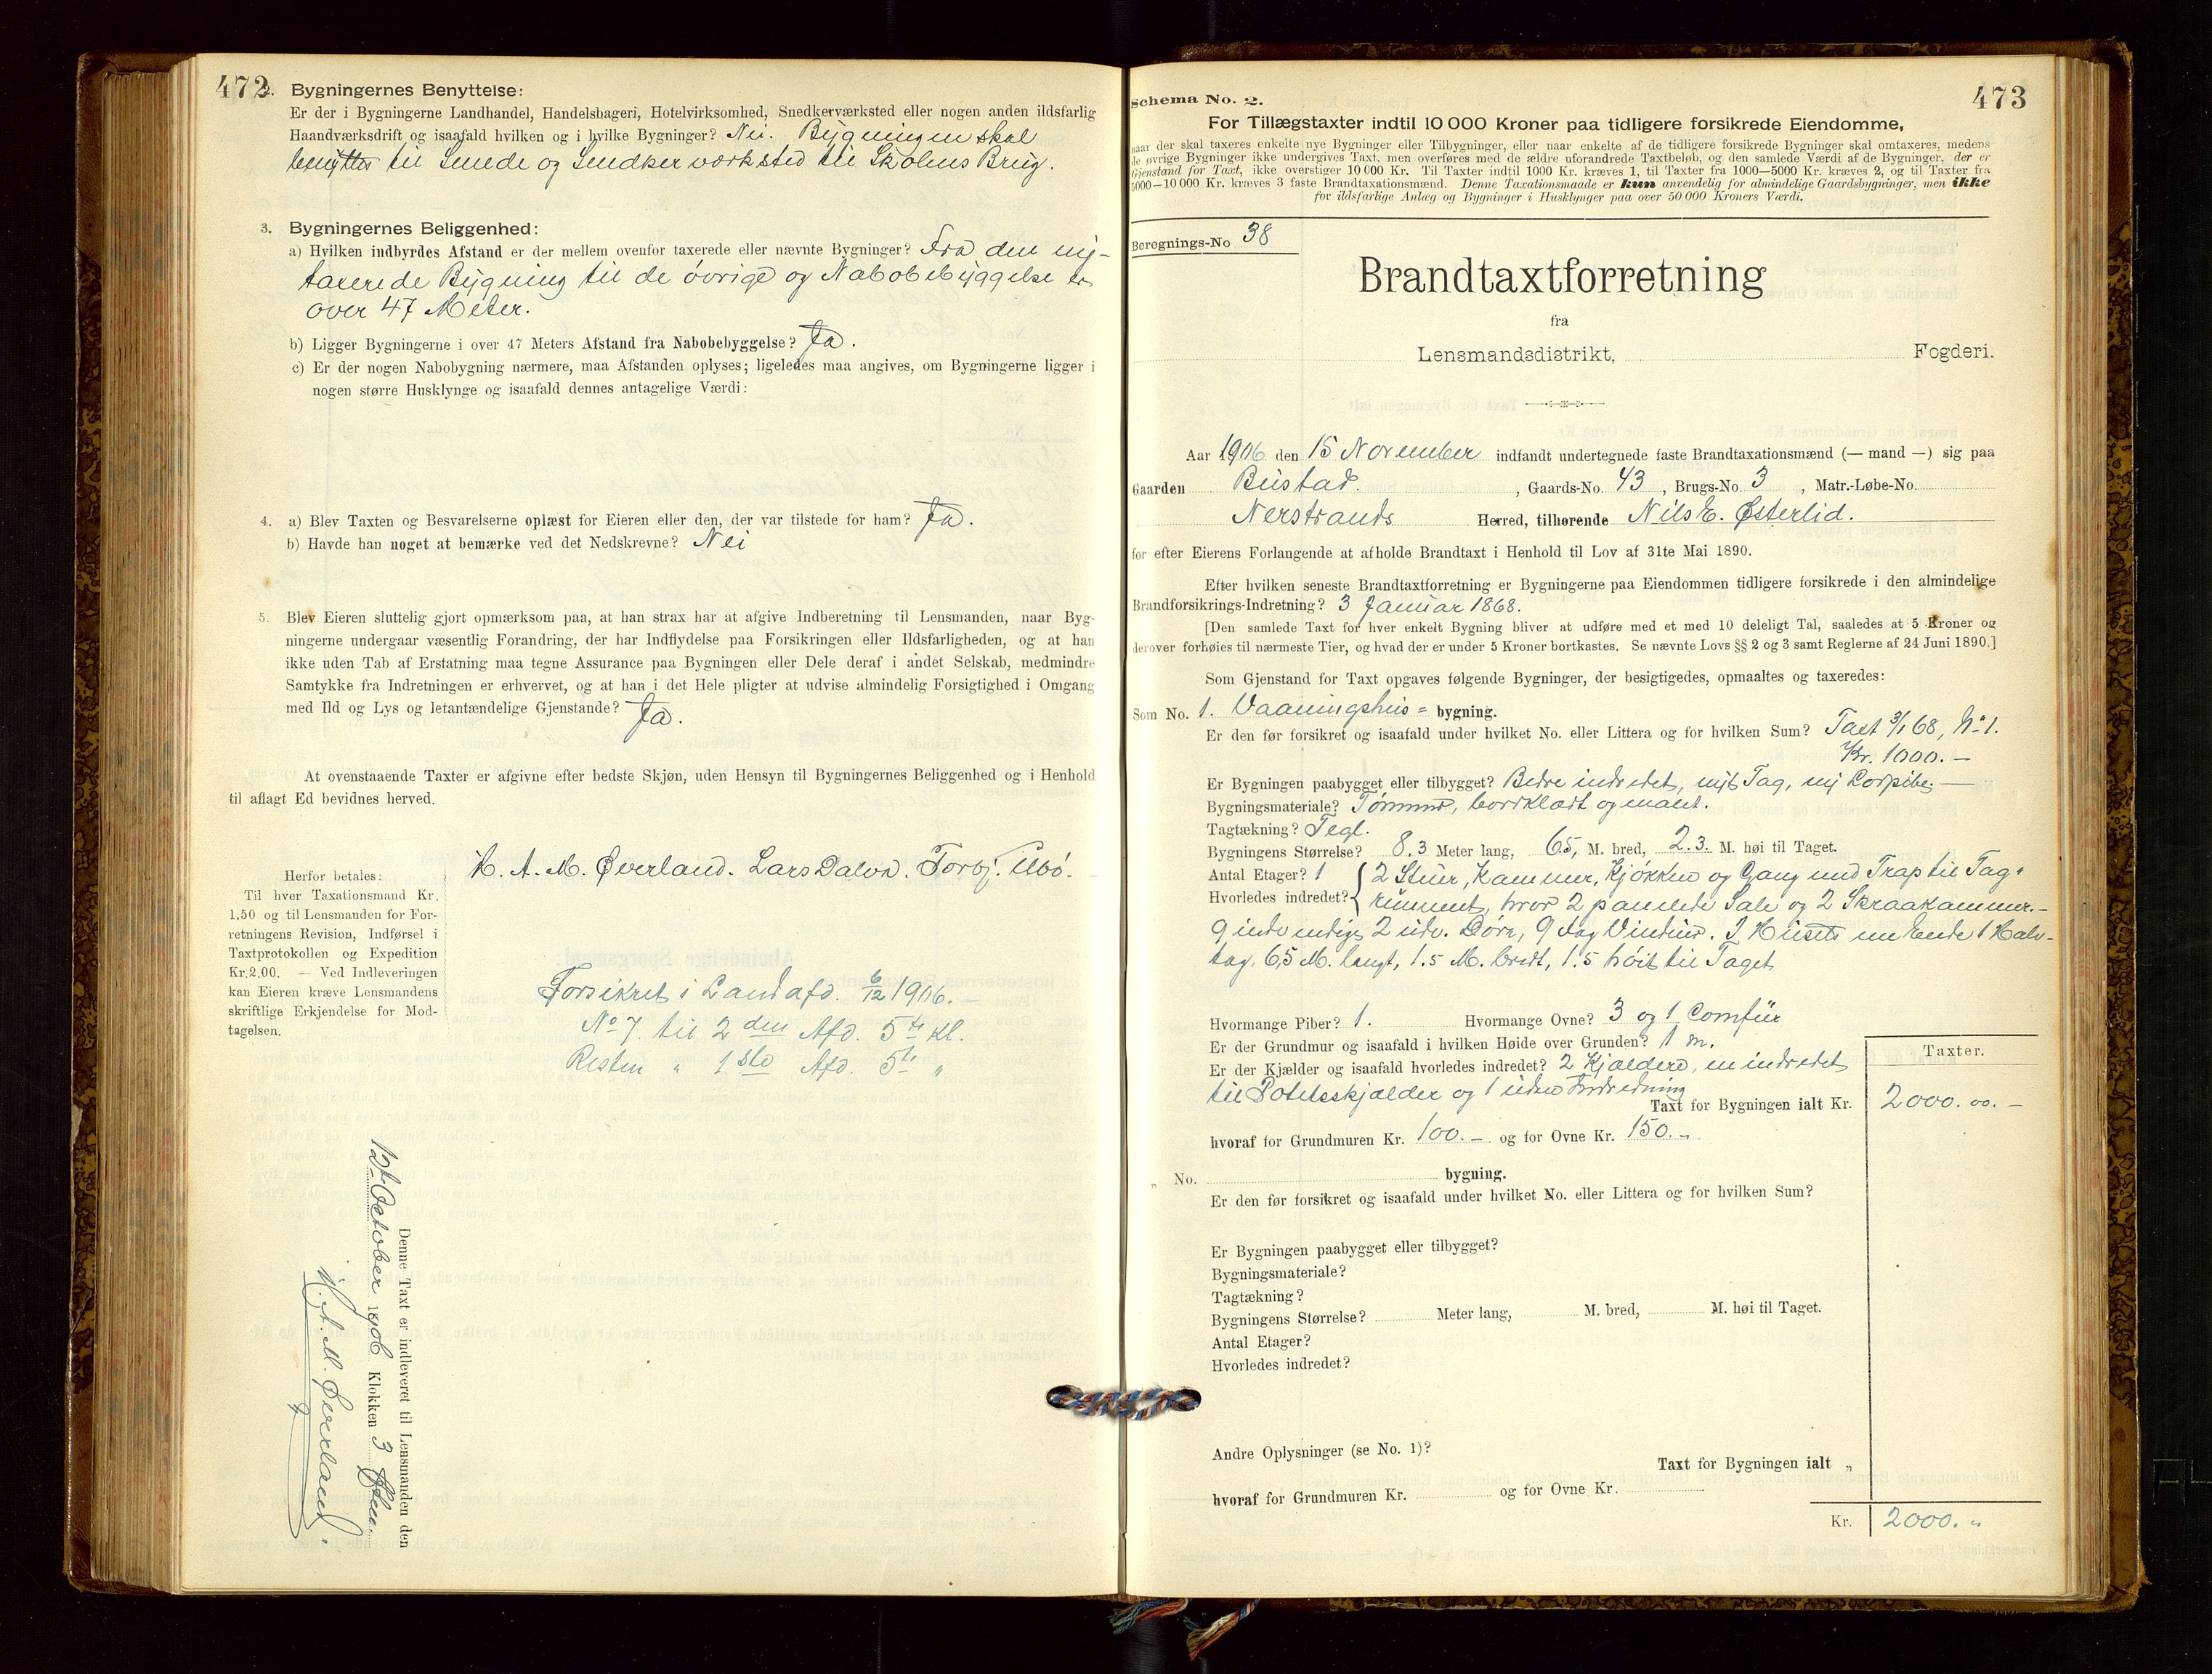 472
2. Bygningernes Benyttelse:
Er der i Bygningerne Landhandel, Handelsbageri, Hotelvirksomhed, Snedkerværksted eller nogen anden ildsfarlig
Haandværksdrift og isaafald hvilken og i hvilke Bygninger? Nei. Bygningen skal
benyttes til Smede og Snedkerværksted til Skolens Brug.
3. Bygningernes Beliggenhed:
a) Hvilken indbyrdes Afstand er der mellem ovenfor taxerede eller nævnte Bygninger? Fra den ny-
taxerede Bygning til de övrige og Nabobebyggelse er
over 47 Meter.
b) Ligger Bygningerne i over 47 Meters Afstand fra Nabobebyggelse? Ja.
c) Er der nogen Nabobygning nærmere, maa Afstanden oplyses; ligeledes maa angives, om Bygningerne ligger i
nogen større Husklynge og isaafald dennes antagelige Værdi:
4. a) Blev Taxten og Besvarelserne oplæst for Eieren eller den, der var tilstede for ham? Ja.
b) Havde han noget at bemærke ved det Nedskrevne? Nei
5. Blev Eieren sluttelig gjort opmærksom paa, at han strax har at afgive Indberetning til Lensmanden, naar Byg-
ningerne undergaar væsentlig Forandring, der har Indflydelse paa Forsikringen eller Ildsfarligheden, og at han
ikke uden Tab af Erstatning maa tegne Assurance paa Bygningen eller Dele deraf i andet Selskab, medmindre
Samtykke fra Indretningen er erhvervet, og at han i det Hele pligter at udvise almindelig Forsigtighed i Omgang
med Ild og Lys og letantændelige Gjenstande? Ja.
At ovenstaaende Taxter er afgivne efter bedste Skjøn, uden Hensyn til Bygningernes Beliggenhed og i Henhold
til aflagt Ed bevidnes herved.
H. A. M. Øverland. Lars Dalva. Torbj.
Herfor betales:
Til hver Taxationsmand Kr.
1,50 og til Lensmanden for For-
retningens Revision, Indførsel i
Taxtprotokollen og Expedition
Kr. 2.00. — Ved Indleveringen
kan Eieren kræve Lensmandens
skriftlige Erkjendelse for Mod-
tagelsen.
Forsikret i Landafd. 6/12 1906. -
No 7. til 2den Afd. 5te Kl.
Resten " 1ste Afd. 5te "
Denne Taxt er indleveret til Lensmanden den
12te October 1906 Klokken 3 Aften.
H. A. M. Øverland.
473
Schema No. 2.
For Tillægstaxter indtil 10 000 Kroner paa tidligere forsikrede Eiendomme,
naar der skal taxeres enkelte nye Bygninger eller Tilbygninger, eller naar enkelte af de tidligere forsikrede Bygninger skal omtaxeres, medens
de øvrige Bygninger ikke undergives Taxt, men overføres med de ældre uforandrede Taxtbeløb, og den samlede Værdi af de Bygninger, der er
Gjenstand for Taxt, ikke overstiger 10 000 Kr. Til Taxter indtil 1000 Kr. kræves 1, til Taxter fra 1000—5000 Kr. kræves 2, og til Taxter fra
5000—10 000 Kr. kræves 3 faste Brandtaxationsmænd. Denne Taxationsmaade er kun anvendelig for almindelige Gaardsbygninger, men ikke
for ildsfarlige Anlæg og Bygninger i Husklynger paa over 50 000 Kroners Værdi.
Beregnings-No 38
Brandtaxtforretning
fra
Lensmandsdistrikt, Fogderi.
Aar 1906 den 15 November indfandt undertegnede faste Brandtaxationsmænd (— mand —) sig paa
Gaarden Bustad. , Gaards-No. 43, Brugs-No. 3, Matr.-Løbe-No.
Nerstrands Herred, tilhørende Nils E. Østerlid.
for efter Eierens Forlangende at afholde Brandtaxt i Henhold til Lov af 31te Mai 1890.
Efter hvilken seneste Brandtaxtforretning er Bygningerne paa Eiendommen tidligere forsikrede i den almindelige
Brandforsikrings-Indretning? 3 Januar 1868.
[Den samlede Taxt for hver enkelt Bygning bliver at udføre med et med 10 deleligt Tal, saaledes at 5 Kroner og
derover forhøies til nærmeste Tier, og hvad der er under 5 Kroner bortkastes. Se nævnte Lovs §§ 2 og 3 samt Reglerne af 24 Juni 1890.]
Som Gjenstand for Taxt opgaves følgende Bygninger, der besigtigedes, opmaaltes og taxeredes:
Som No. 1. Vaaningshus = bygning.
Er den før forsikret og isaafald under hvilket No. eller Littera og for hvilken Sum? Taxt 3/1 68, No 1.
Kr. 1000. —
Er Bygningen paabygget eller tilbygget? Bedre indredet, nyt Tag, ny Torpibe; —
Bygningsmateriale? Tømmer, bordklædt og malet.
Tagtækning? Tegl.
Bygningens Størrelse? 8.3 Meter lang, 6.5, M. bred, 2.3. M. høi til Taget.
Antal Etager? 1 2 Stuer, Kammer, Kjøkken og Gang med Trap til Tag-
Hvorledes indredet? rummet, hvor 2 panelede Sale og 2 Skraakammer. -
9 indvendige, 2 udv. Døre, 9 Fag Vinduer. I Husets ene Ende 1 Halv-
tag, 6.5 M. langt, 1.5 M. bredt, 1.5 höit til Taget
Hvormange Piber? 1. Hvormange Ovne? 3 og 1 Comfür
Er der Grundmur og isaafald i hvilken Høide over Grunden? 1 m.
Er der Kjælder og isaafald hvorledes indredet? 2 Kjældere, en indredet
til Potetskjælder og 1 uden Indredning
Taxter.
Taxt for Bygningen ialt Kr. 2000.00. —
hvoraf for Grundmuren Kr. 100. — og for Ovne Kr. 150. -
" No. bygning.
Er den før forsikret og isaafald under hvilket No. eller Littera og for hvilken Sum?
Er Bygningen paabygget eller tilbygget?
Bygningsmateriale?
Tagtækning?
Bygningens Størrelse? Meter lang, M. bred, M. høi til Taget.
Antal Etager?
Hvorledes indredet?
Andre Oplysninger (se No. 1)?
Taxt for Bygningen ialt "
hvoraf for Grundmuren Kr. og for Ovne Kr.
Kr. 2000. "